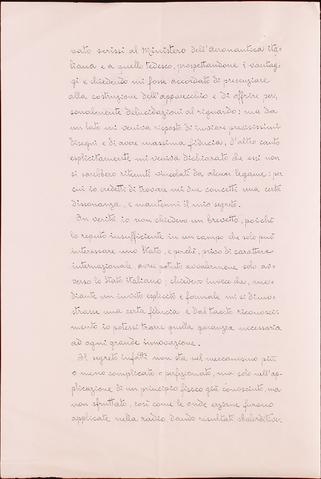 vato scrissi al Ministero dell'aeronautica ita-
liana e a quello tedesco, prospettandone i vantag-
gi e chiedendo mi fosse accordato di presenziare
alla costruzione dell'apparecchio e di offrire per,
sonalmente delucidazioni al riguardo; ma da
un lato mi veniva risposto di inviare precisissimi
disegni e di avere massima fiducia, d'altro canto
esplicitamente mi veniva dichiarato che essi non
si sarebbero ritenuti vincolati da alcun legame; per
cui io credetti di trovare nei due concetti una certa
dissonanza, e mantenni il mio segreto.
In verità io non chiedevo un brevetto, poiché
lo reputo insufficiente in un campo che solo può
interessare uno Stato, e perché, privo di carattere
internazionale, avrei potuto avvalermene solo av-
verso lo Stato italiano; chiedevo invece che, me-
diante un invito esplicito e formale mi si dimo-
strasse una certa fiducia e dal tacito riconosci-
mento io potessi trarre quella garanzia necessaria
ad ogni grande innovazione.
Il segreto infatti non sta nel meccanismo più
o meno complicato o perfezionato, ma solo nell'ap-
plicazione di un principio fisico già conosciuto, ma
non sfruttato, così come le onde erziane furono
applicate nella radio dando risultati sbalorditivi